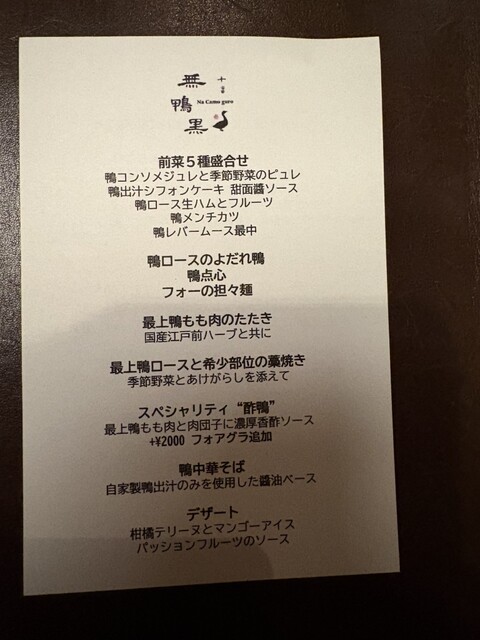 無
鴨
黒
Na Camo guro
十番
前菜5種盛合せ
鴨コンソメジュレと季節野菜のピュレ
鴨出汁シフォンケーキ 甜面醬ソース
鴨ロース生ハムとフルーツ
鴨メンチカツ
鴨レバームース最中
鴨ロースのよだれ鴨
鴨点心
フォーの担々麺
最上鴨もも肉のたたき
国産江戸前ハーブと共に
最上鴨ロースと希少部位の藁焼き
季節野菜とあけがらしを添えて
スペシャリティ“酢鴨”
最上鴨もも肉と肉団子に濃厚香酢ソース
+¥2000 フォアグラ追加
鴨中華そば
自家製鴨出汁のみを使用した醬油ベース
デザート
柑橘テリーヌとマンゴーアイス
パッションフルーツのソース